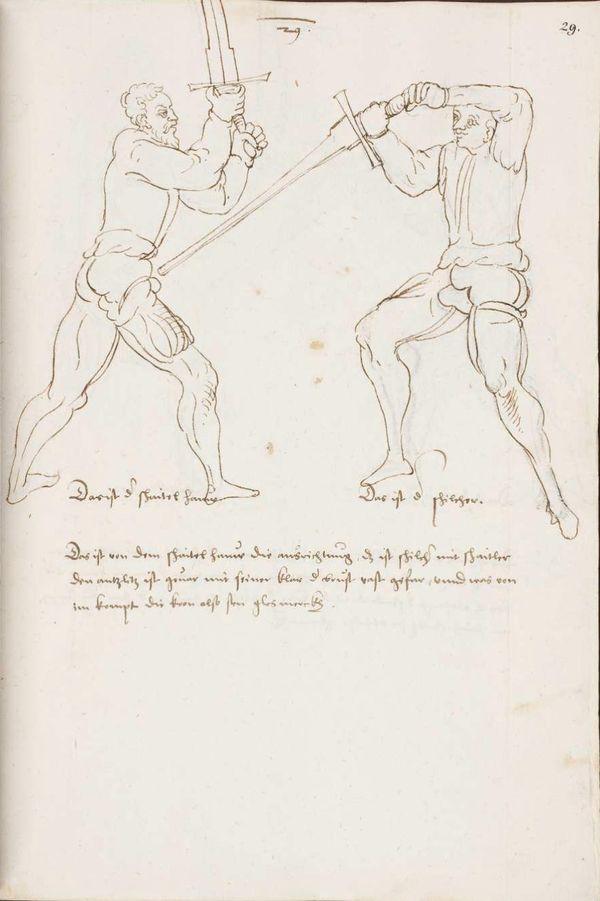 29.
29.
Das ist d' schaitel hauw
Das ist d' schilcher.
Das ist von dem schaitel hauw die ausrichtung, dz ist schilch mit schaitler
den antzlitz ist gevar mit seiner klar d' brust vast gefar, vnnd was von
im kompt die kron also sen glos merckh.